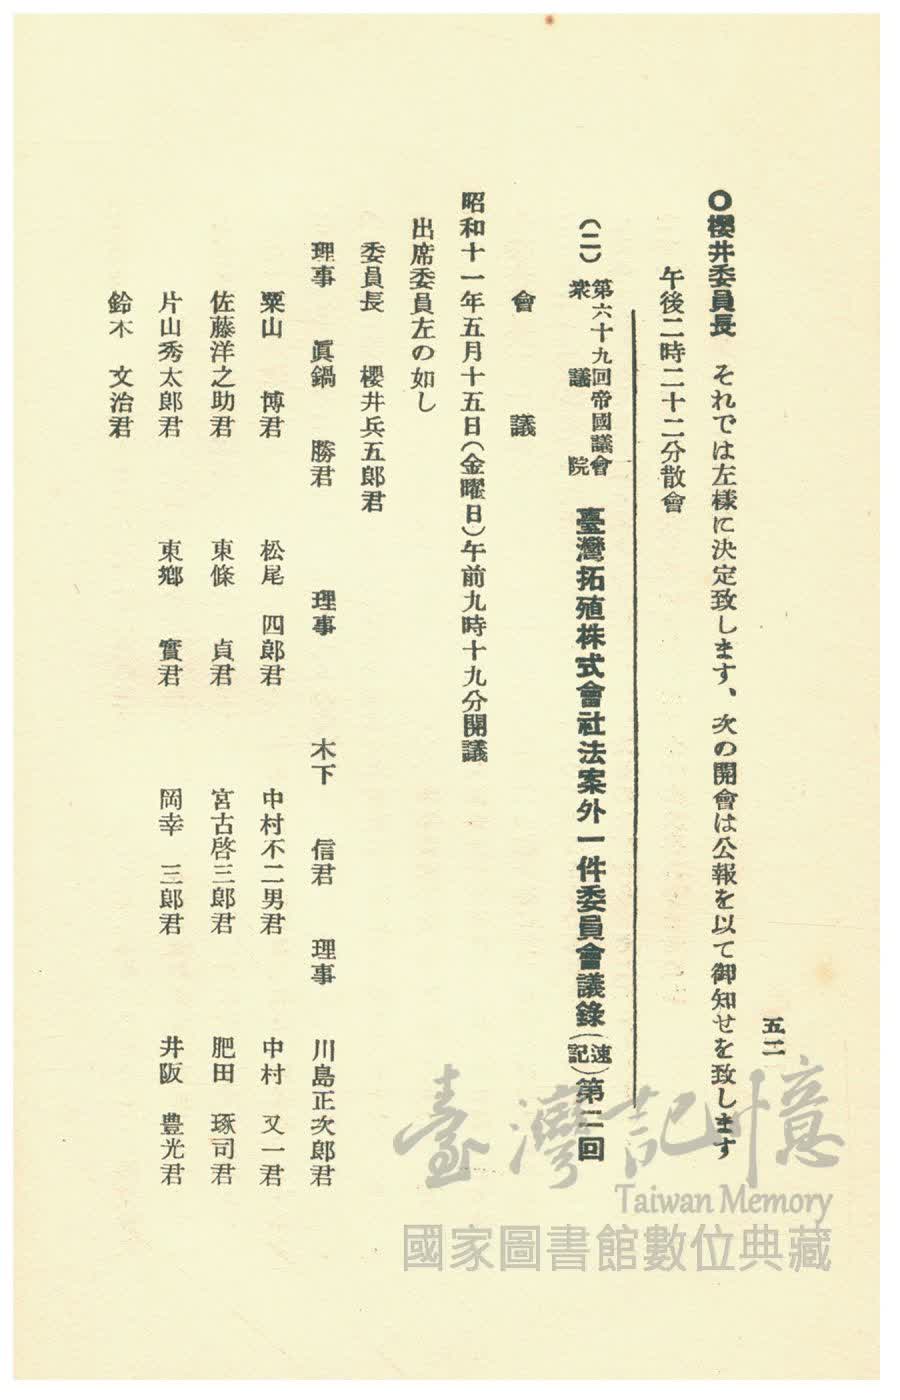 五二
〇櫻井委員長　それでは左樣に決定致します、次の開會は公報を以て御知せを致します
午後二時二十二分散會
(二)第六十九回帝國議會衆議院　臺灣拓殖株式會社法案外一件委員會議錄(速記)第二回
會議
昭和十一年五月十五日(金曜日)午前九時十九分開議
出席委員左の如し
委員長　櫻井兵五郎君
理事　眞鍋　勝君　理事　木下　信君　理事　川島正次郎君
粟山　博君　松尾　四郎君　中村不二男君　中村　又一君
佐藤洋之助君　東條　貞君　宮古啓三郎君　肥田　琢司君
片山秀太郎君　東鄕　實君　岡幸　三郎君　井阪　豊光君
鈴木　文治君
臺灣記憶
Taiwan Memory
國家圖書館數位典藏